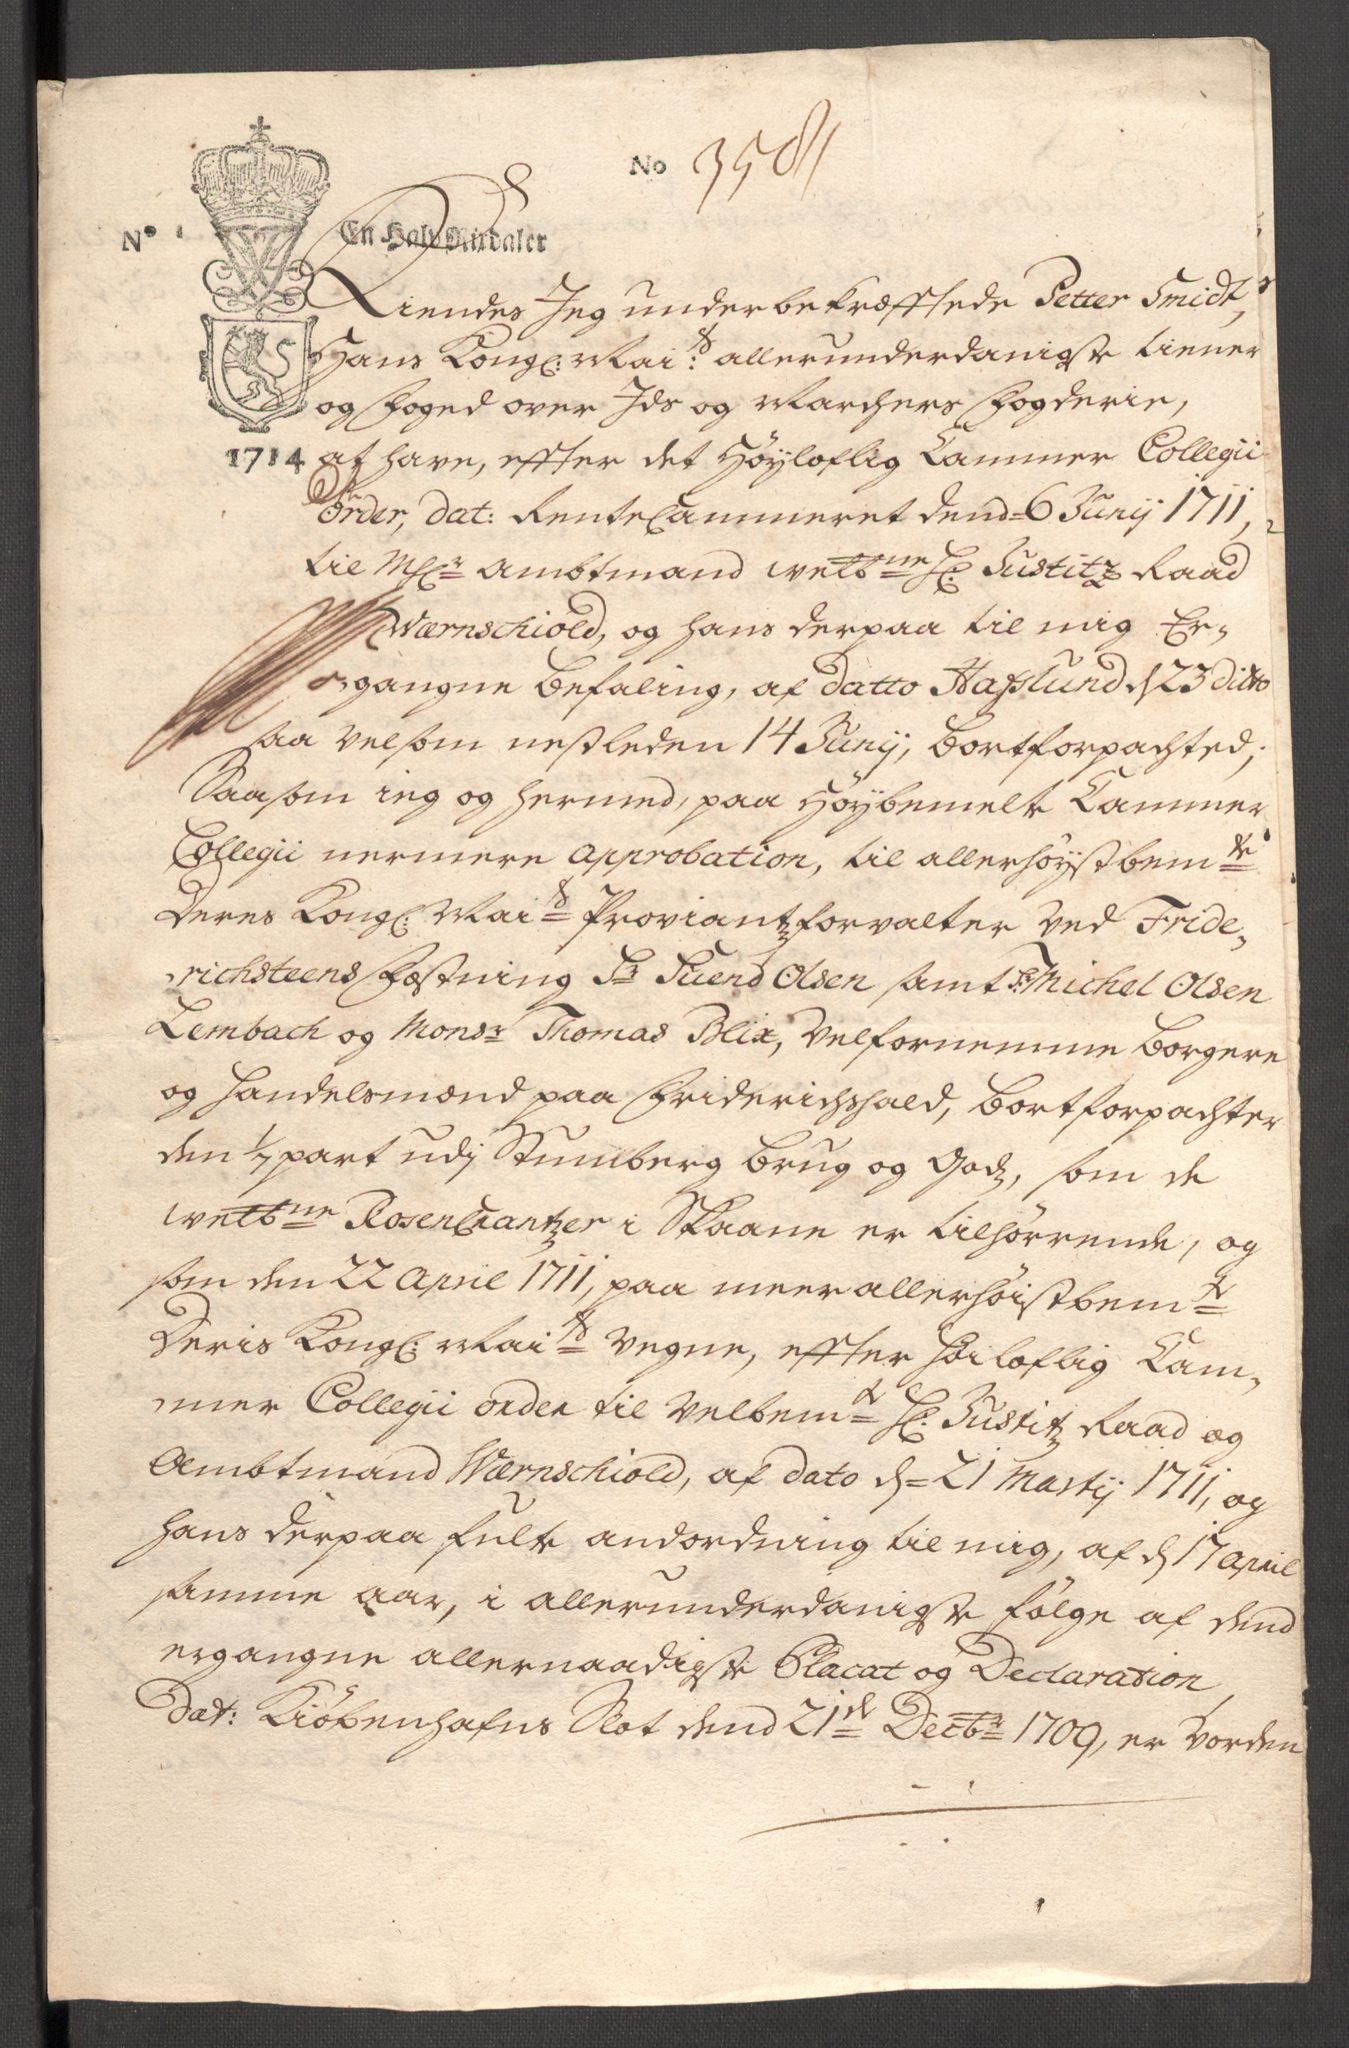 No 3581
No 1
En Halv Rixdaler
Kiendes Jeg underbekræfftede Petter Smidt,
Hans Kongl: Maits: allerunderdanigste tiener
og foged over Ids og Marchers fogderie,
1714
at have, effter det Höyloflig Cammer Collegii
Order, dat: RenteCammeret dend 6 Junij 1711,
til Ambtmand welbne Hr: Justitz Raad
Wærnschiold, og hans derpaa til mig Er-
gangne befaling, af datto Hafslund d 23 ditto
saa velsom nestleden 14 Junij, bortforpachted;
Saasom ieg og hermed, paa Höybemelte Cammer
Collegii nermere approbation, til allerhöystbemte
Deres Kongl: Maits Proviantzforvalter ved Fride-
richsteens Fæstning Sr Suend Olsen samt Sr: Michel Olsen
Lembach og Monsr Thomas Blix, velfornemme borgere
og handelsmænd paa Friderichshald, bortforpachter
den 1/7 part udj Stumberg brug og Godz, som de
welbne Rosencrantzer i Skaane er tilhörrende, og
som den 22 April 1711, paa meer allerhöistbemte
Deris Kongl: Maits vegne, effter höiloflig Cam-
mer Collegii order til velbemte Hr: Justitz Raad og
Ambtmand Wærnschiold, af dato d 21 Martij 1711, og
hans derpaa fulte andordning til mig, af d 17 April
samme aar, i allerunderdanigste fölge af dend
ergangne allernaadigste Placat og Declaration
Dat: Kiöbenhafns Slot dend 21de Decbr 1709, er vorden